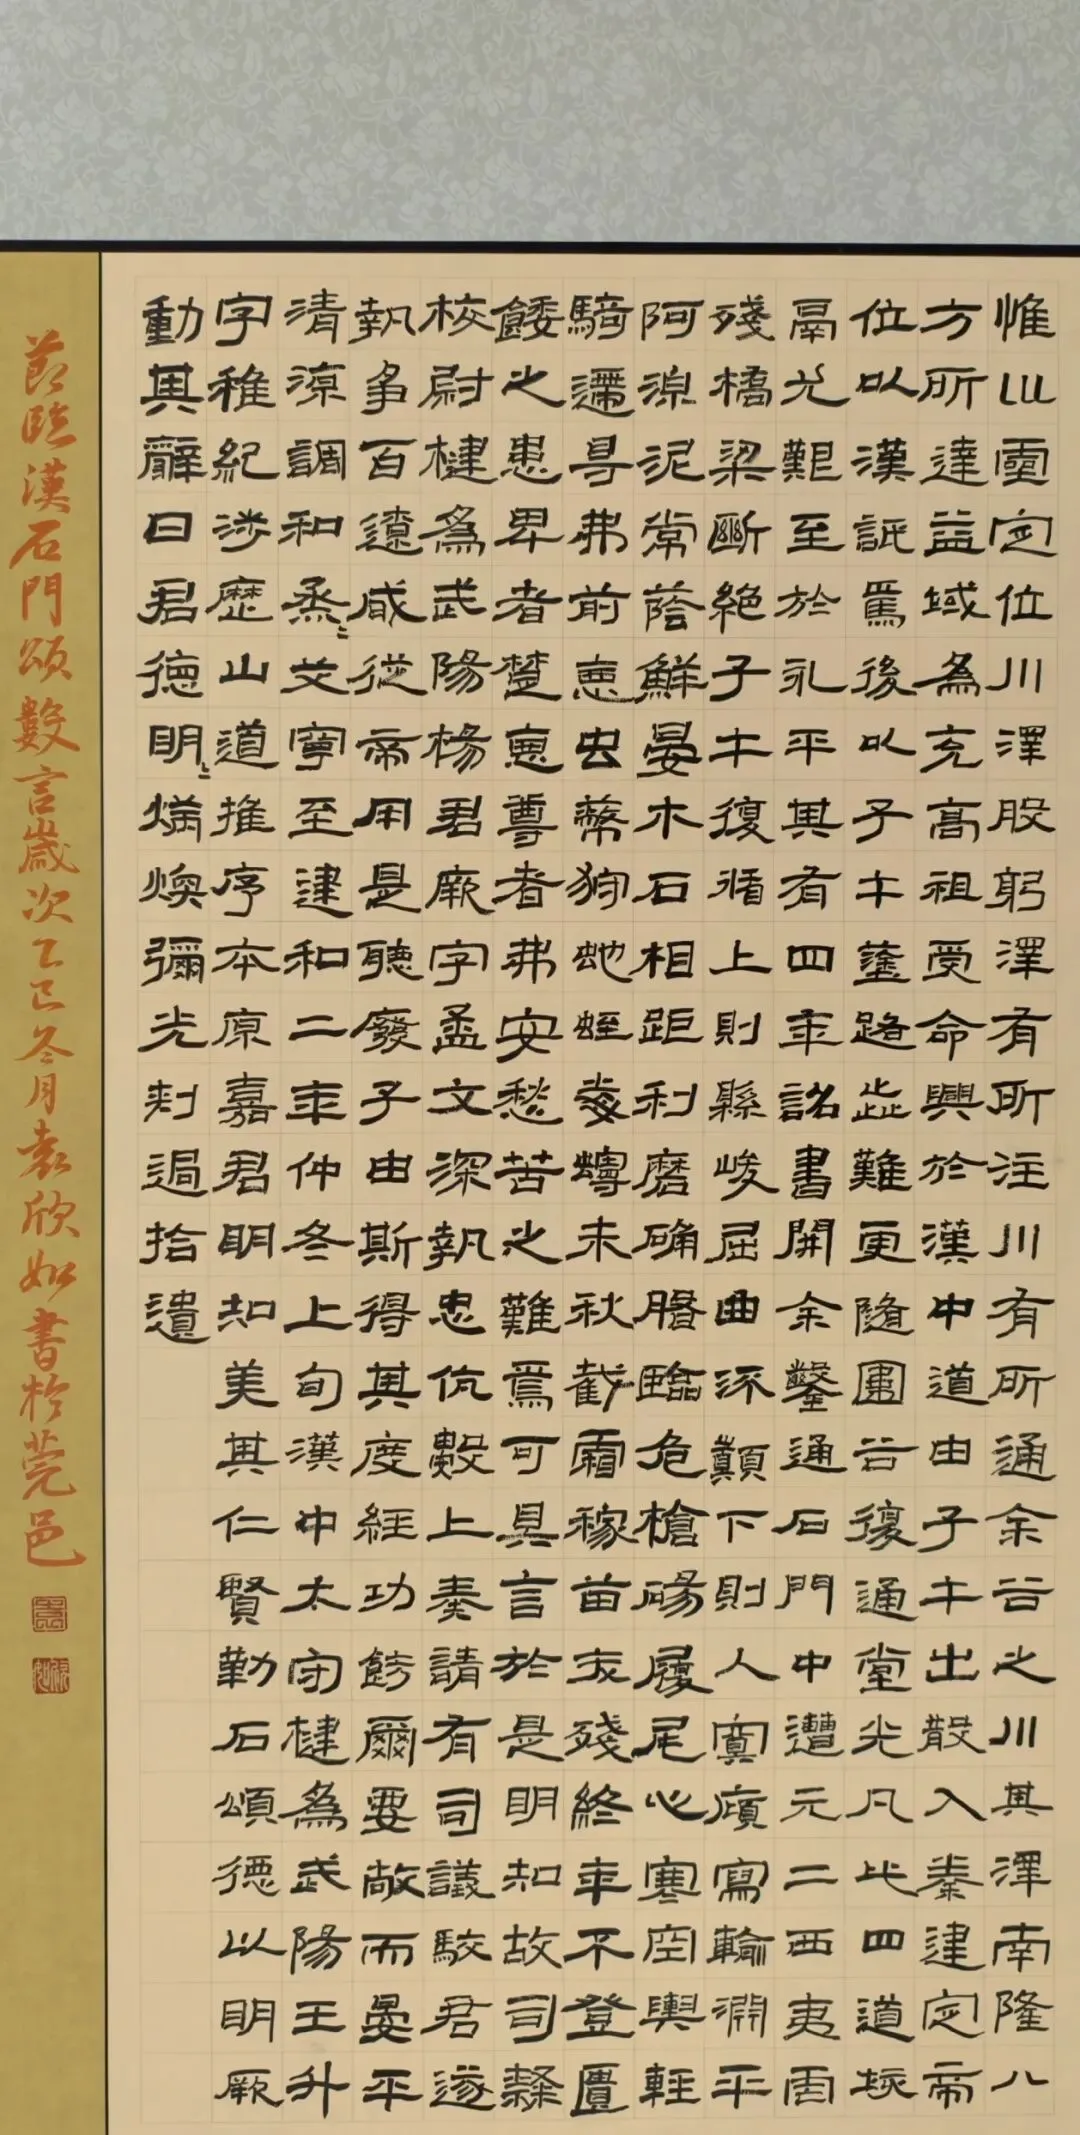 惟山靈定位川澤股躬澤有所注川有所通余谷之川其澤南隆八
方所達益域為充高祖受命興於漢中道由子午出散入秦建定帝
位以漢詆焉後以子午塗路歰難更隨圍谷復通堂光凡此四道垓
鬲尤艱至於永平其有四年詔書開余鑿通石門中遭元二西夷虐
殘橋梁斷絕子午復循上則縣峻屈曲流顛下則人寞傾寫輸淵平
阿湶泥常蔭鮮晏木石相距利磨确磐臨危槍碭履尾心寒空輿輕
騎遰㝵弗前惡虫蔽狩虵蛭毒蟃未秋截霜稼苗夭殘終年不登匱
餧之患卑者楚惡尊者弗安愁苦之難焉可具言於是明知故司隸
校尉楗為武陽楊君厥字孟文深執忠伉數上奏請有司議駮君遂
執爭百遼咸從帝用是聽廢子由斯得其度經功飭爾要敞而晏平
清涼調和烝〻艾寧至建和二年仲冬上旬漢中太守楗為武陽王升
字稚紀涉歷山道推序本原嘉君明知美其仁賢勒石頌德以明厥
動其辭曰君德明〻炳煥彌光刺過拾遺
節臨漢石門頌數言歲次乙巳冬月袁欣如書於莞邑